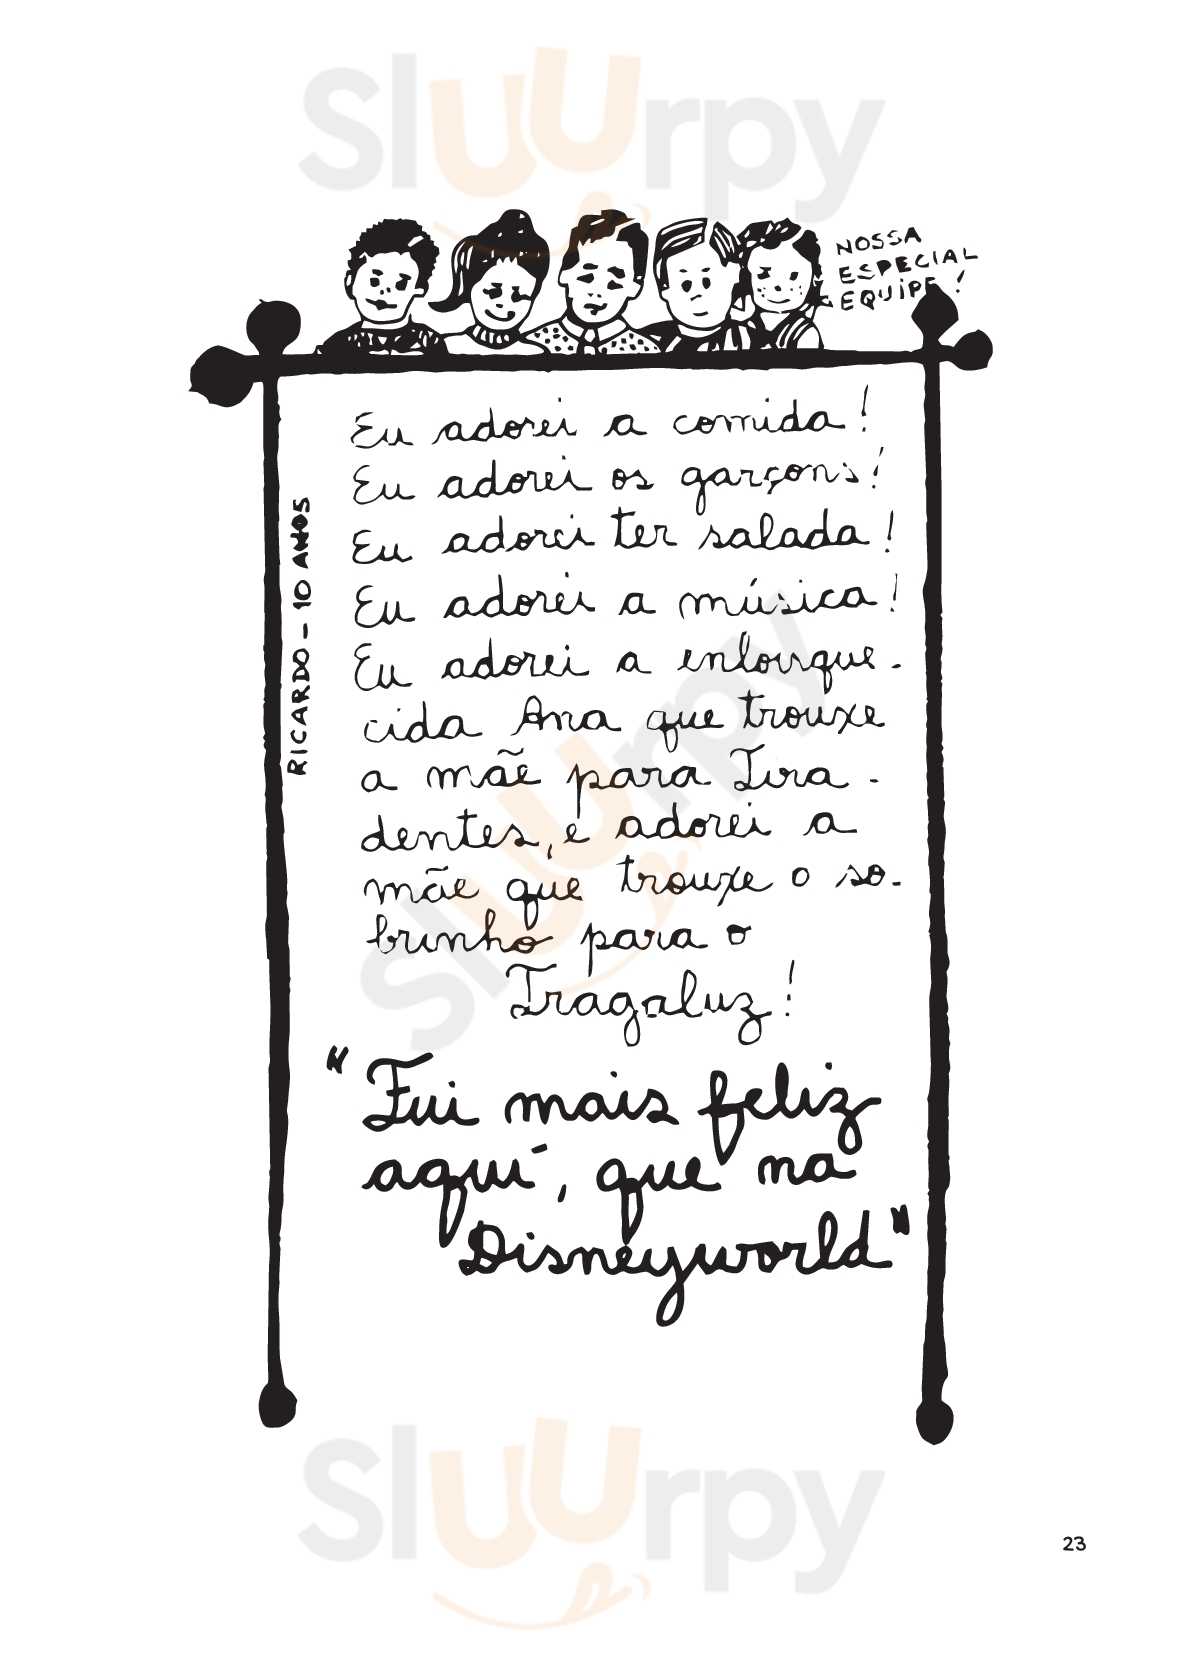 Sluurpy
NOSSA
ESPECIAL
EQUIPE!
RICARDO - 10 ANOS
Eu adorei a comida!
Eu adorei os garçons!
Eu adorei ter salada!
Eu adorei a música!
Eu adorei a enlouque-
cida Ana que trouxe
a mãe para Tira-
dentes, e adorei a
mãe que trouxe o so-
brinho para o
Tragaluz!
Sluurpy
"Fui mais feliz
aquí, que na
Disneyworld"
Sluurpy
23